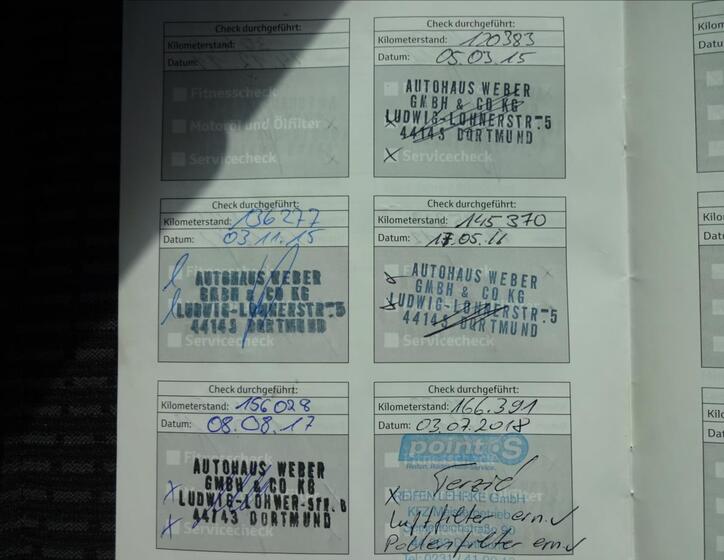 Check durchgeführt:
Kilometerstand:
Datum:
Fitnesscheck
Motoröl und Ölfilter
Servicecheck
Check durchgeführt:
Kilometerstand: 120383
Datum: 05.03.15
AUTOHAUS WEBER
GMBH & CO KG
LUDWIG-LOHNERSTR.5
44143 DORTMUND
Servicecheck
Check durchgeführt:
Kilometerstand: 136277
Datum: 03.11.15
AUTOHAUS WEBER
GMBH & CO KG
LUDWIG-LOHNERSTR.5
44143 DORTMUND
Servicecheck
Check durchgeführt:
Kilometerstand: 145370
Datum: 17.05.16
AUTOHAUS WEBER
GMBH & CO KG
LUDWIG-LOHNERSTR.5
44143 DORTMUND
Servicecheck
Check durchgeführt:
Kilometerstand: 156028
Datum: 08.08.17
AUTOHAUS WEBER
GMBH & CO KG
LUDWIG-LOHNER-STR.
44143 DORTMUND
Check durchgeführt:
Kilometerstand: 166.391
Datum: 03.07.2018
point S
REIFEN LEHNKE GmbH
Luftfilter ern.
Pollenfilter ern.